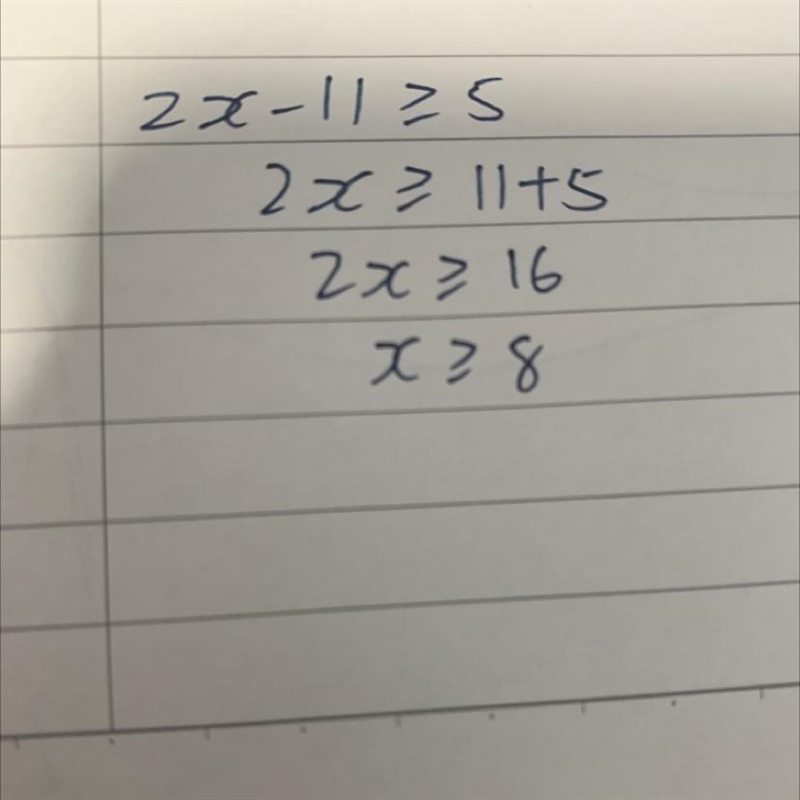 2x - 11 ≥ 5
2x ≥ 11 + 5
2x ≥ 16
x ≥ 8